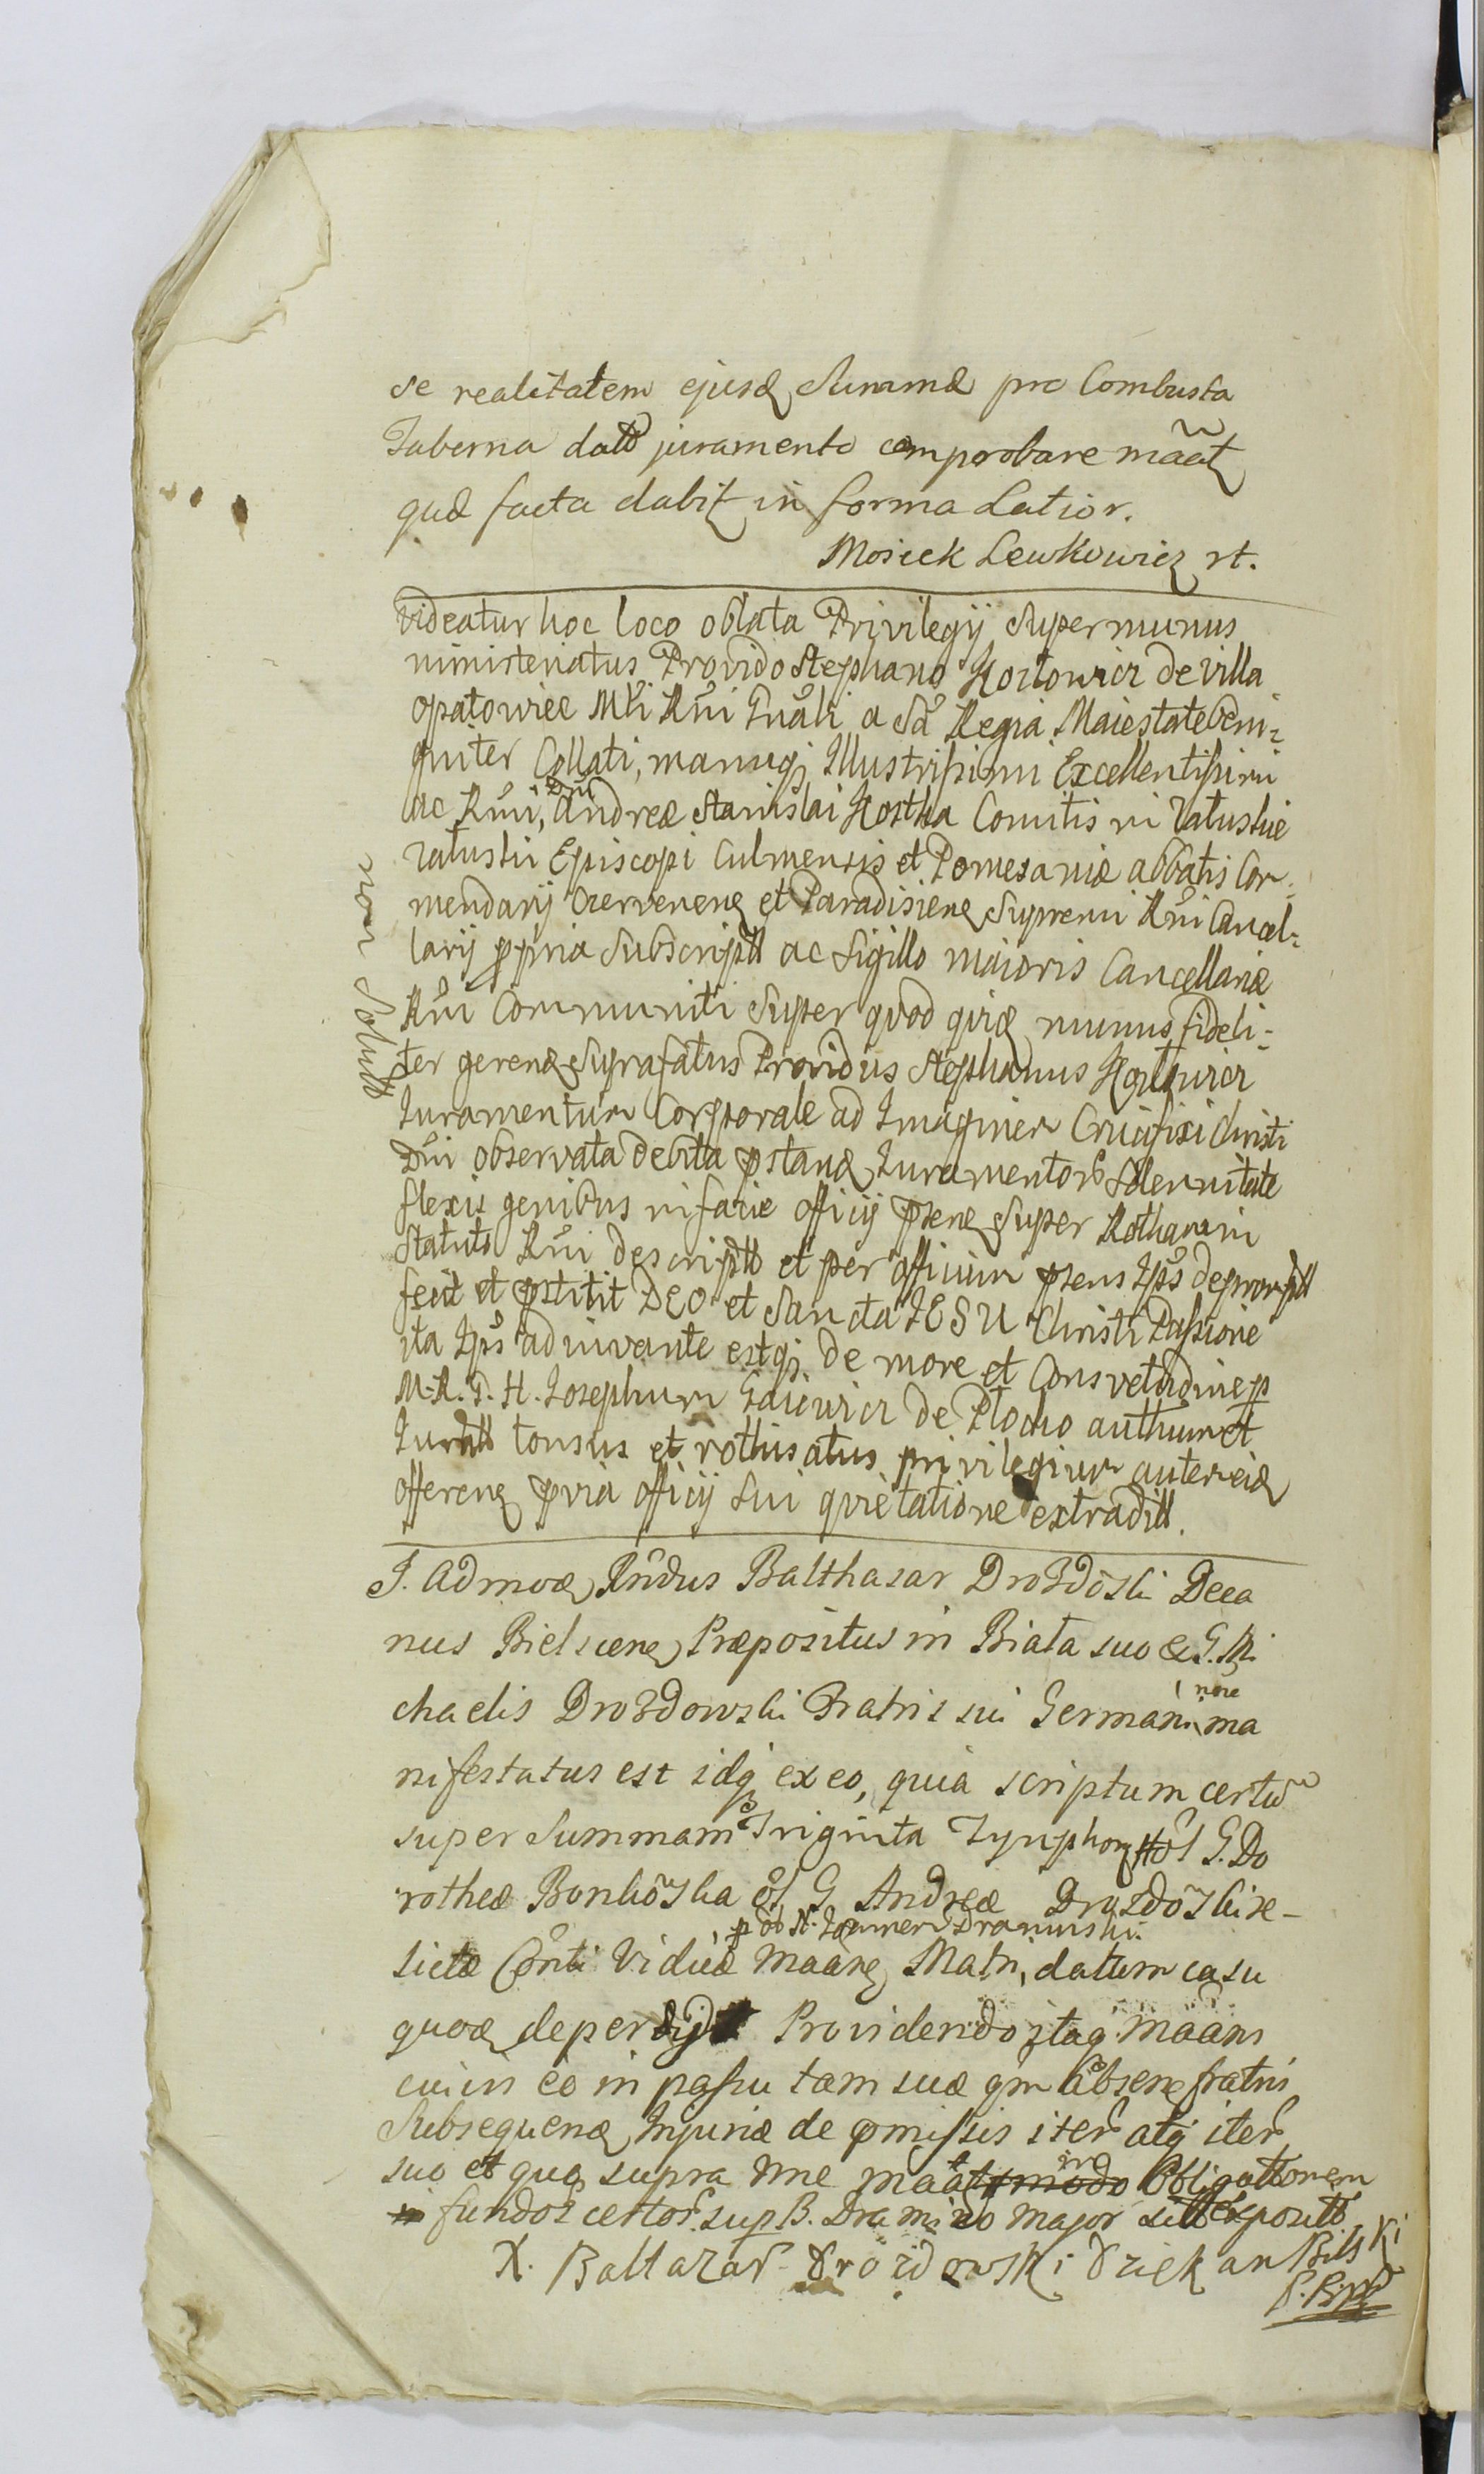 se realitatem ejusd Summæ pro Combusta
Taberna dato juramento comprobare mãat
quæ facta dabit in forma Latior.
Mosiek Lewkowicz rt.
Videatur hoc loco oblata Privilegij Super munus
ministeriatus Provido Stephano Kozłowicz de Villa
Opatowiec Mti Rni Gnali a Sa Regia Maiestate beni=
gniter Collati, manuqj Illustrissimi Excellentissimi
ac Rmi, Dni Andreæ Stanislai Kostka Comitis in Załuskie
Załuski Episcopi Culmensis et Pomesaniæ abbatis Com
mendarij Czervenen et Paradisien Supremi Rni Cancel=
larij ppria Subscript ac Sigillo maioris Cancellariæ
Rni Communiti Super quod qidæ munus fideli=
ter gerend Suprafatus Providus Stephanus Kozłowicz
Juramentum Corporale ad Imaginem Crucifixi Christi
Dni observata debita pstand Juramentor Solennitate
flexis genibus in facie officij psen Super Rotham in
Statuto Rni descript et per officium psens Ips deprompt
fecit et pstitit DEO et Sancta JESU Christi Passione
ita Ips adiuvante estqj de more et Consvetudine p
M. R. D. H. Josephum Gaiewicz de Płocko authum et
Jurat tonsus et rothisatus privilegium autem eid
offeren pvia officij Sui qvietatione extradit.
non Solut
J. Admod Rndus Balthasar Drozdoski Deca
nus Bielscen Præpositus in Biała suo et G. Mi
chaelis Drozdowski Fratris sui Germani nõie ma
nifestatus est idq ex eo, quia scriptum certũ
super Summam Triginta Tynphon G. Do
rotheæ Bonkõska ol G. Andreæ Drozdõski re-
lictæ Conti Viduæ maan Matri, datum casu
p ol N. Draminski
quod deperdit Providendo itaq maans
cuivis eo in passu tam suæ qm absen fratris
Subsequend Injuriæ de pmissis iter atq iter
suo et quo supra nne maat modo ind Obligationem
in fundos certos sup B. Dramino major sitt exposit
X. Baltazar Drozdowski Dziekan Bilski
P. B. mp